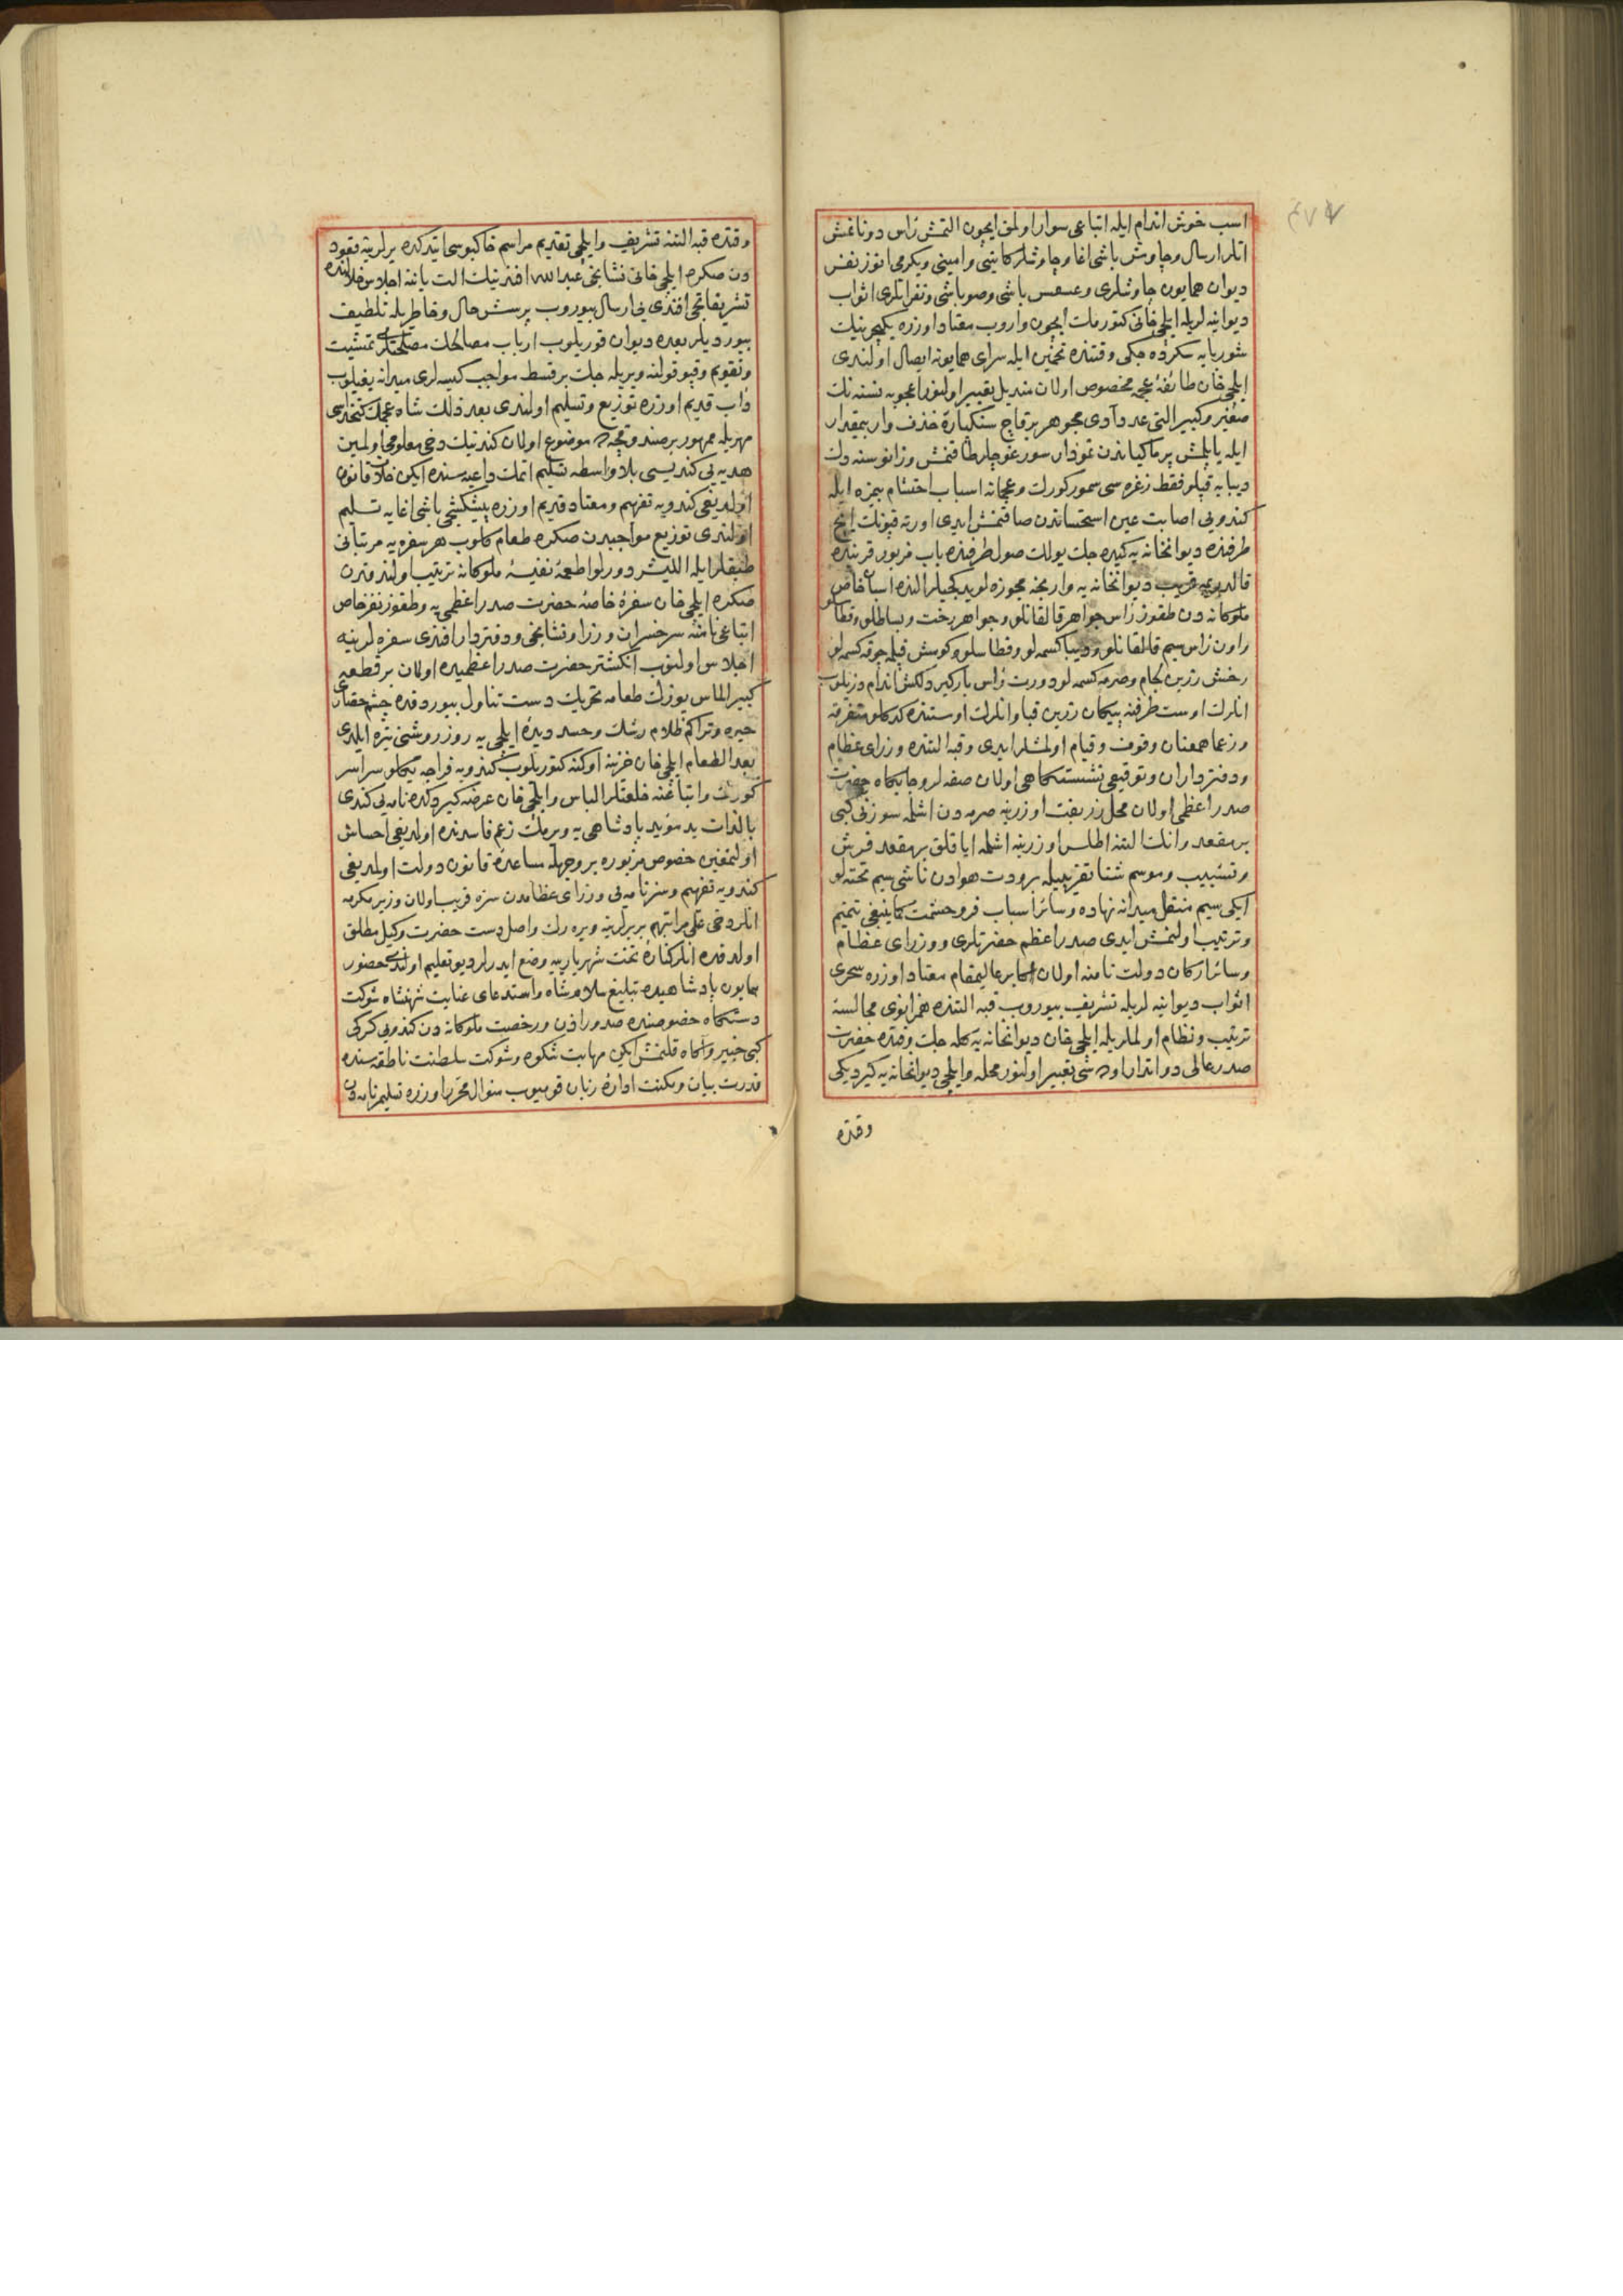 اسب خوش اندام ایله اتباعی سوار اولمق ایچون التمش رأس دونانمش
اتلر ارسال و چاوش باشی اغا و چاوشلر کاتبی و امینی و یکرمی اتوز نفر
دیوان همایون چاوشلری و عسس باشی و صوباشی و نفراتلری اثواب
دیوانیه لریله ایلچی خانی کتورمك ایچون واروب معتاد اوزره یکیچرینك
شوربایه سکردوجکی وقتنده تخمین ایله سرای همایونه ایصال اولندی
ایلچی خان طائفهٔ عجمه مخصوص اولان مندیل تعبیر اولنور اعجوبه نسنه نك
صغیر و کبیر التی عدد آدی مجوهر برقاچ سنکپارهٔ خذف وار بمقدار
ایله یاپلمش
دیبایه قپلو فقط زغره سی سمور کورك و عجمانه اسباب احتشام بیمزه ایله
کندویی اصابت عین استحساندن صاقنمش ایدی اورته قپونك ایچ
طرفنده دیوانخانه یه کیده جك یولك صول طرفنده باب مزبور قربنده
دیوانخانه یه وارنجه مجوزه لو یدکجیلر النده اسبان خاص
ملوکانه دن طقوز رأس جواهر قالقانلو و جواهر رخت و بساطلو و قطاسلو
و اون رأس سیم قالقانلو و دیبا کسمه لو و قطاسلو و کومش قپلمه جوقه کسمه لو
رخش زرین لجام و صرمه کسمه لو و درت رأس بارکیر دلکش اندام دزیلوب
انلرك اوست طرفنه پیکان زرین قبا و انلرك اوستنده کدکلو متفرقه
و زعما همعنان وقوف و قیام اولمشلر ایدی و قبه التنده وزرای عظام
و دفترداران و توقیعی نشستکاهی اولان صفه لر و جایکاه حضرت
صدر اعظمی اولان محل زربفت اوزرینه صرمه دن اشلمه سوزنی کبی
بر مقعد و انك التنه اطلس اوزرینه اشلمه ایاقلق بر مقعد فرش
و تسبیب و موسم شتا تقریبیله برودت هوادن ناشی سیم تخته لو
ایکی سیم منقل میرانه نهاده و سائر اسباب فر و حشمت کما ینبغی تتمیم
و ترتیب اولنمش ایدی صدر اعظم حضرتلری و وزرای عظام
و سائر ارکان دولت نامنه اولان اکابر عالیمقام معتاد اوزره سحری
اثواب دیوانیه لریله تشریف بیوروب قبه التنده همزانوی مجالسه
ترتیب و نظام اولملریله ایلچی خان دیوانخانه یه کله جك وقتده حضرت
صدر عالی دو اتدار اوده سی تعبیر اولنور محله و ایلچی دیوانخانه یه کیردیکی
وقتده
وقتده قبه التنه تشریف و ایلچی تقدیم مراسم خاکبوسی ایتدکده یرلرینه قعود
دن صکره ایلچی خانی نشانجی عبد الله افندینك الت یاننه اجلاس
تشریفاتجی افندی یی ارسال بیوروب پرسش حال و خاطریله تلطیف
بیوردیلر بعده دیوان قوریلوب ارباب مصالحك مصلحتلری تمشیت
و تقویم و قپو قولنه ویریله جك بر قسط مواجب کیسه لری میدانه یغیلوب
دأب قدیم اوزره توزیع و تسلیم اولندی بعد ذلك شاه عجمك کتخداسی
مهریله ممهور بر صندوقچه ده موضوع اولان کندینك دخی معلومی اولمین
هدیه یی کندیسی بلا واسطه تسلیم اتمك داعیه سنده ایکن خلاف قانون
اولدیغی کندویه تفهیم و معتاد قدیم اوزره پیشکشجی باشی اغایه تسلیم
اولندی توزیع مواجبدن صکره طعام کلوب هر سفره یه مرتبانی
طبقلر ایله اللیشر دورلو اطعمهٔ نفیسهٔ ملوکانه ترتیب اولندقدن
صکره ایلچی خان سفرهٔ خاصهٔ حضرت صدر اعظمی یه و طقوز نفر خاص
اتباعی وزرا و نشانجی و دفتردار افندی سفره لرینه
اجلاس اولنوب انکشتر حضرت صدر اعظمیده اولان بر قطعه
کبیر الماس یوزك طعامه تحریك دست تناول بیوردقده چشم حضار
خیره و تراکم ظلام رشك و حسد دیدهٔ ایلچی یه روز روشنی تیره ایلدی
بعد الطعام ایلچی خان خزینه اوکنه کتوریلوب کندویه فراجه یکلو سراسر
کورك و اتباعنه خلعتلر الباس و ایلچی خان عرضه کیردکده نامه یی کندی
بالذات ید مؤید پادشاهی یه ویرمك زعم فاسدنده اولدیغی احساس
اولنمغین خصوص مزبوره بر وجهله مساعدهٔ قانون دولت اولمدیغی
کندویه تفهیم و سز نامه یی وزرای عظامدن سزه قریب اولان وزیر مکرمه
انلر دخی علی مراتبهم بربرلرینه ویره رك واصل دست حضرت وکیل مطلق
اولدقده انلر کنارهٔ تخت شهریارییه وضع ایدرلر دیو تعلیم اولندی حضور
همایون پادشاهیده تبلیغ سلام شاه و استدعای عنایت شهنشاه شوکت
دستکاه خصوصنده صدور اذن و رخصت ملوکانه دن کندویی کرکی
کبی خبیر و آکاه قلنمش ایکن مهابت شکوه و شوکت سلطنت ناطقه سنده
قدرت بیان و مکنت ادارهٔ زبان قومیوب منوال محرر اوزره تسلیم نامه دن